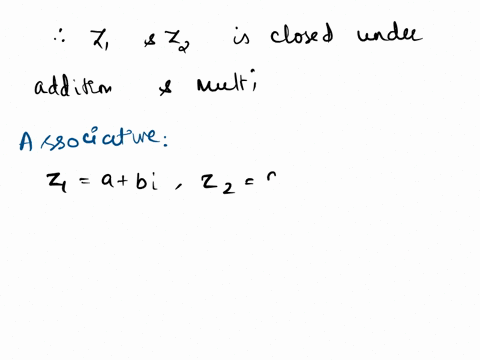 ∴ Z₁ & Z₂ is closed under
addition & multi,
Associature:
Z₁ = a + bi , Z₂ =